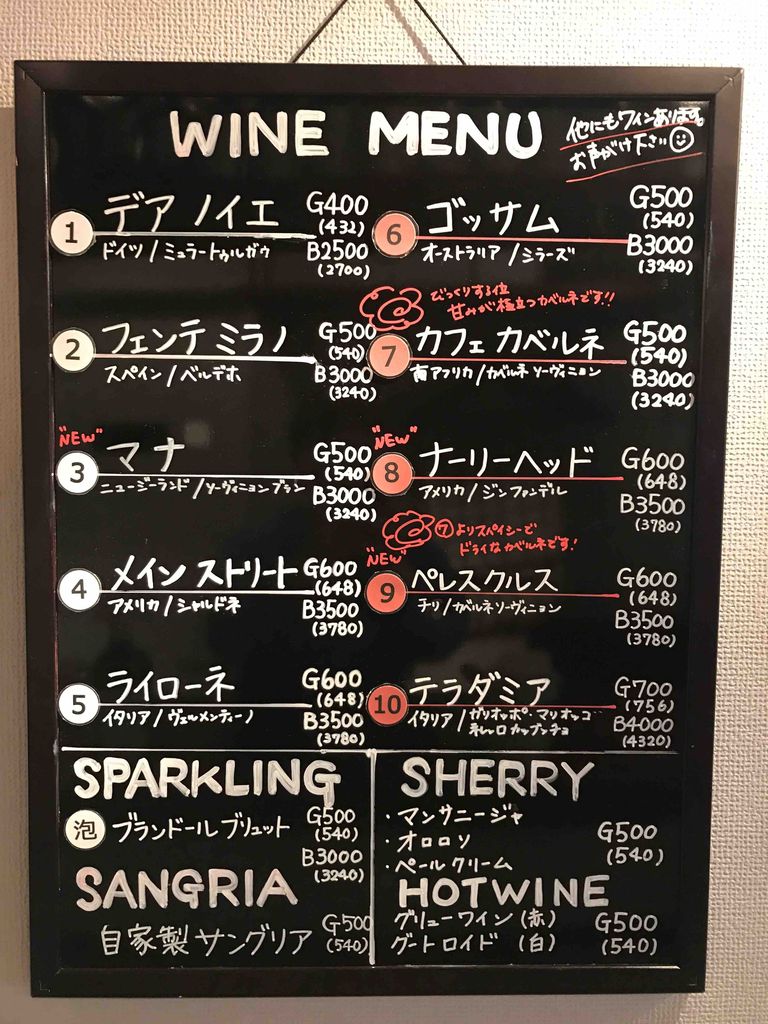 WINE MENU
他にもワインあります。
お声がけ下さい
1 デア ノイエ G400
(432)
ドイツ/ミュラートゥルガウ B2500
(2700)
2 フェンテ ミラノ G500
(540)
スペイン/ベルデホ B3000
(3240)
"NEW"
3 マナ G500
(540)
ニュージーランド/ソーヴィニョンブラン B3000
(3240)
4 メイン ストリート G600
(648)
アメリカ/シャルドネ B3500
(3780)
5 ライローネ G600
(648)
イタリア/ヴェルメンティーノ B3500
(3780)
6 ゴッサム G500
(540)
オーストラリア/シラーズ B3000
(3240)
びっくりする位
甘みが極立つカベルネです!!
7 カフェ カベルネ G500
(540)
南アフリカ/カベルネ ソーヴィニョン B3000
(3240)
"NEW"
8 ナーリーヘッド G600
(648)
アメリカ/ジンファンデル B3500
(3780)
⑦よりスパイシーで
ドライなカベルネです!
"NEW"
9 ペレスクルス G600
(648)
チリ/カベルネソーヴィニョン B3500
(3780)
10 テラダミア G700
(756)
イタリア/ガリオッポ・マリオッコ B4000
カップッチョ (4320)
SPARKLING
泡 ブランドール ブリュット G500
(540)
B3000
(3240)
SANGRIA
自家製サングリア G500
(540)
SHERRY
・マンサニージャ
・オロロソ G500
・ペールクリーム (540)
HOTWINE
グリューワイン(赤) G500
グートロイド (白) (540)